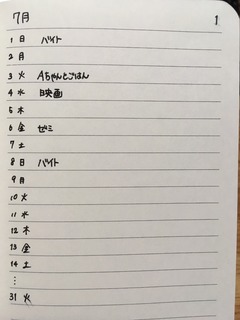 7月 1
1 日 バイト
2 月
3 火 Aちゃんとごはん
4 水 映画
5 木
6 金 ゼミ
7 土
8 日 バイト
9 月
10 火
11 水
12 木
13 金
14 土
⋮
31 火